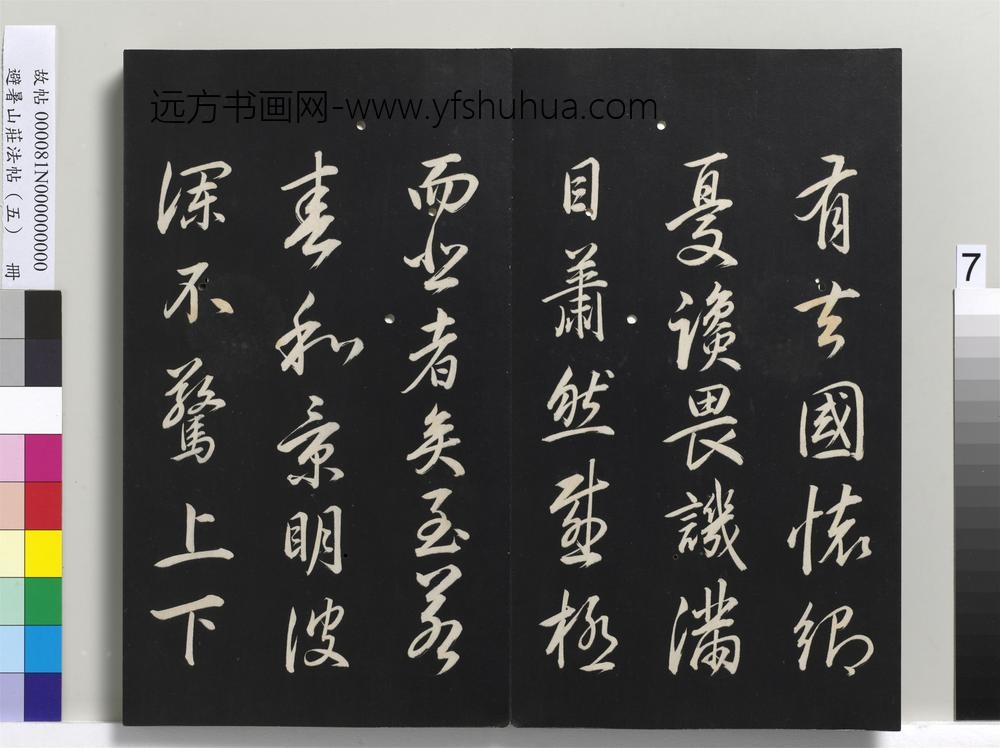 远方书画网-www.yfshuhua.com
有去國懷鄉
憂讒畏譏滿
目蕭然感極
而悲者矣至若
春和景明波
瀾不驚上下
故帖 000081N000000000
避暑山莊法帖（五） 冊
7